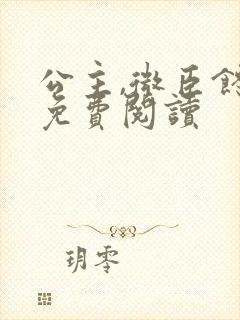 公主,微臣
免費閱讀
玥零